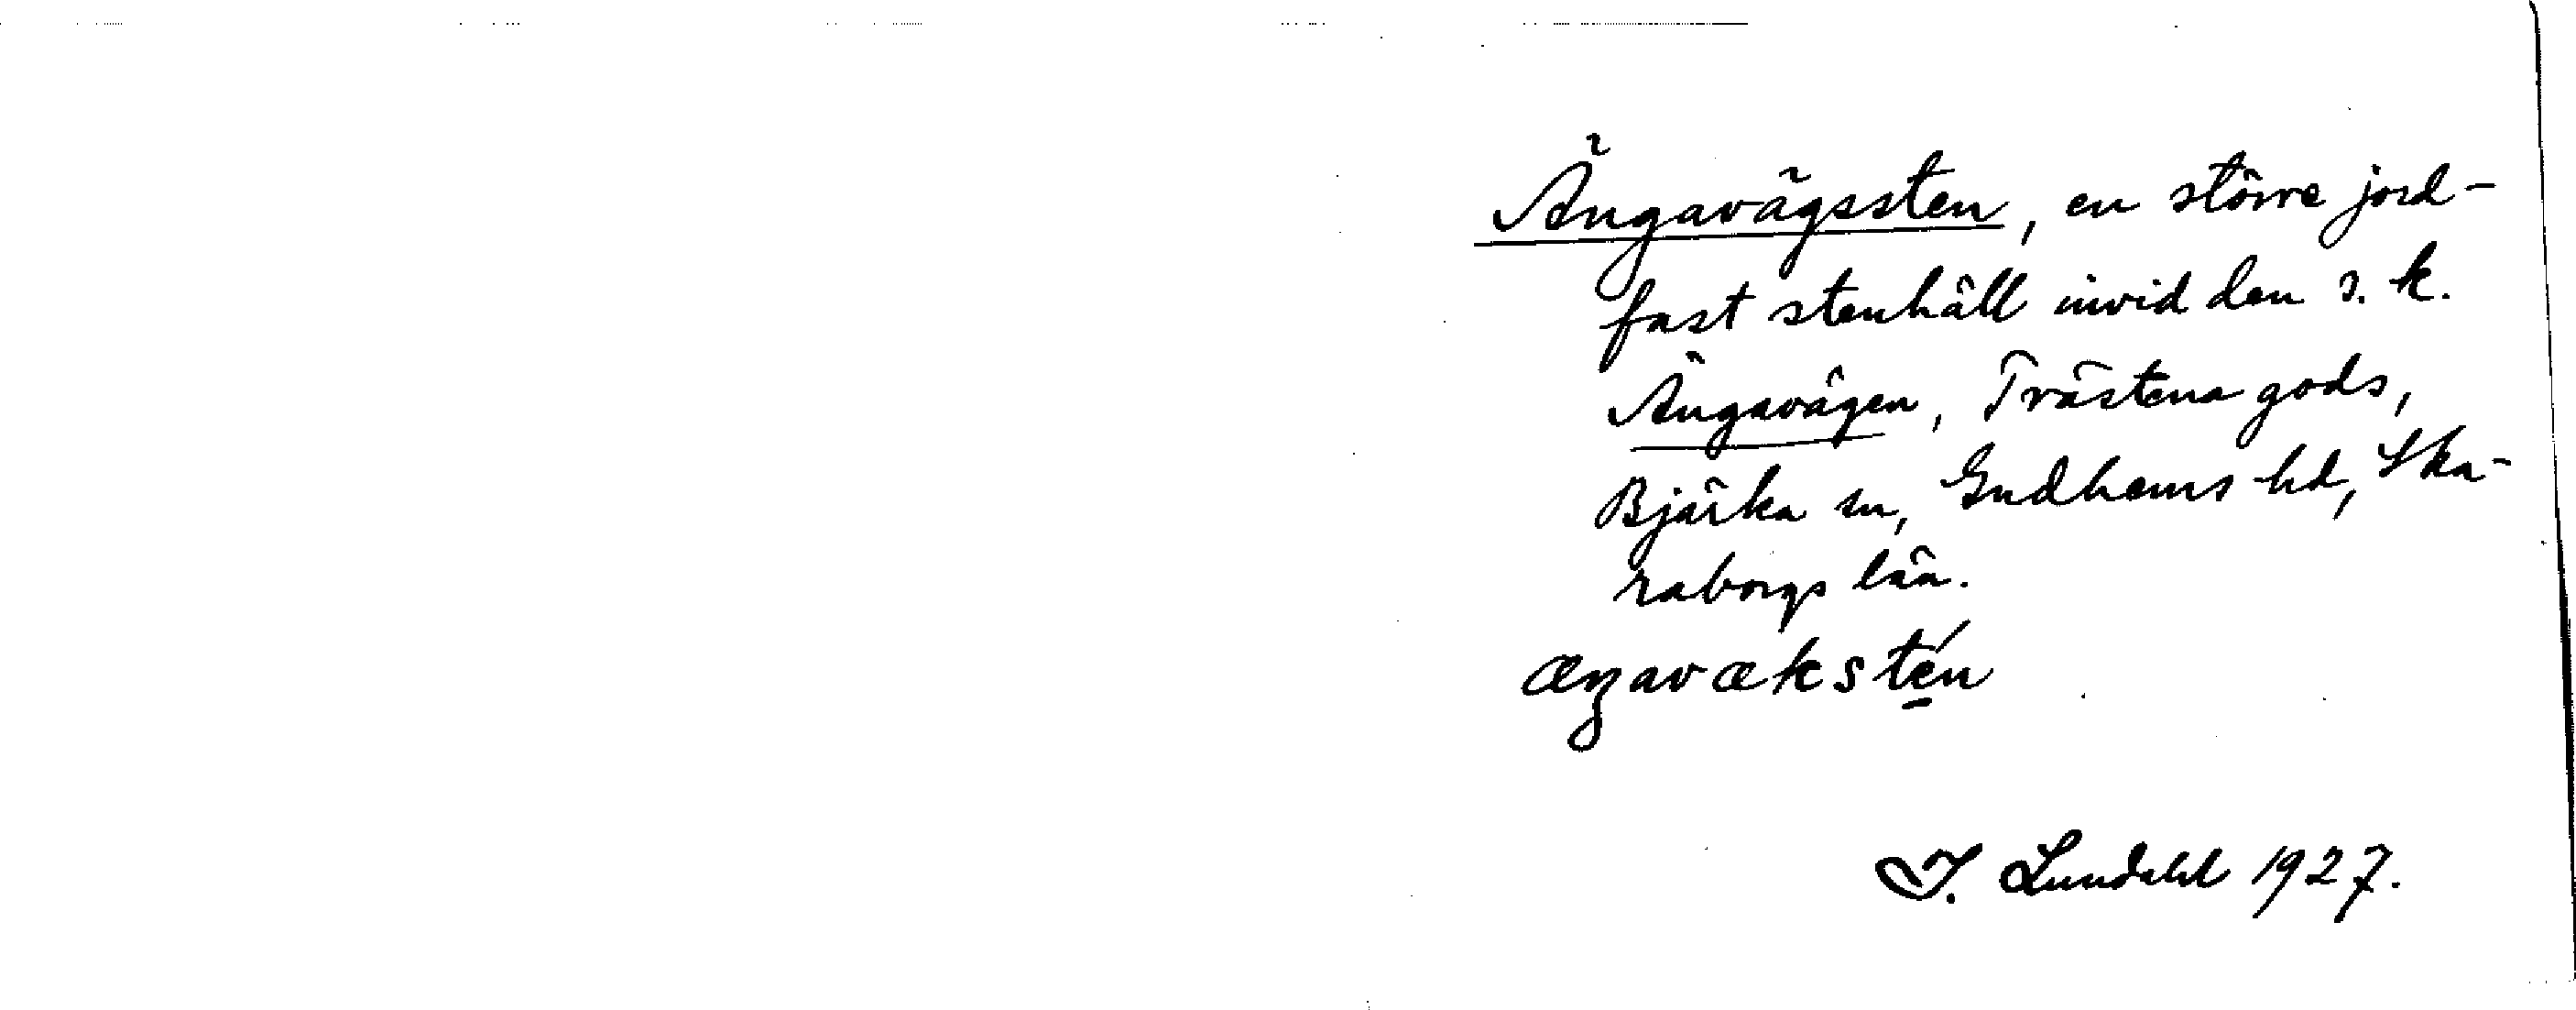 Ängavägssten, en större jord-
fast stenhäll invid den s. k.
Ängavägen, Trästena gods,
Bjärka sn, Gudhems hd, Ska-
raborgs län.
æŋavæksté̱n
I. Lundahl 1927.